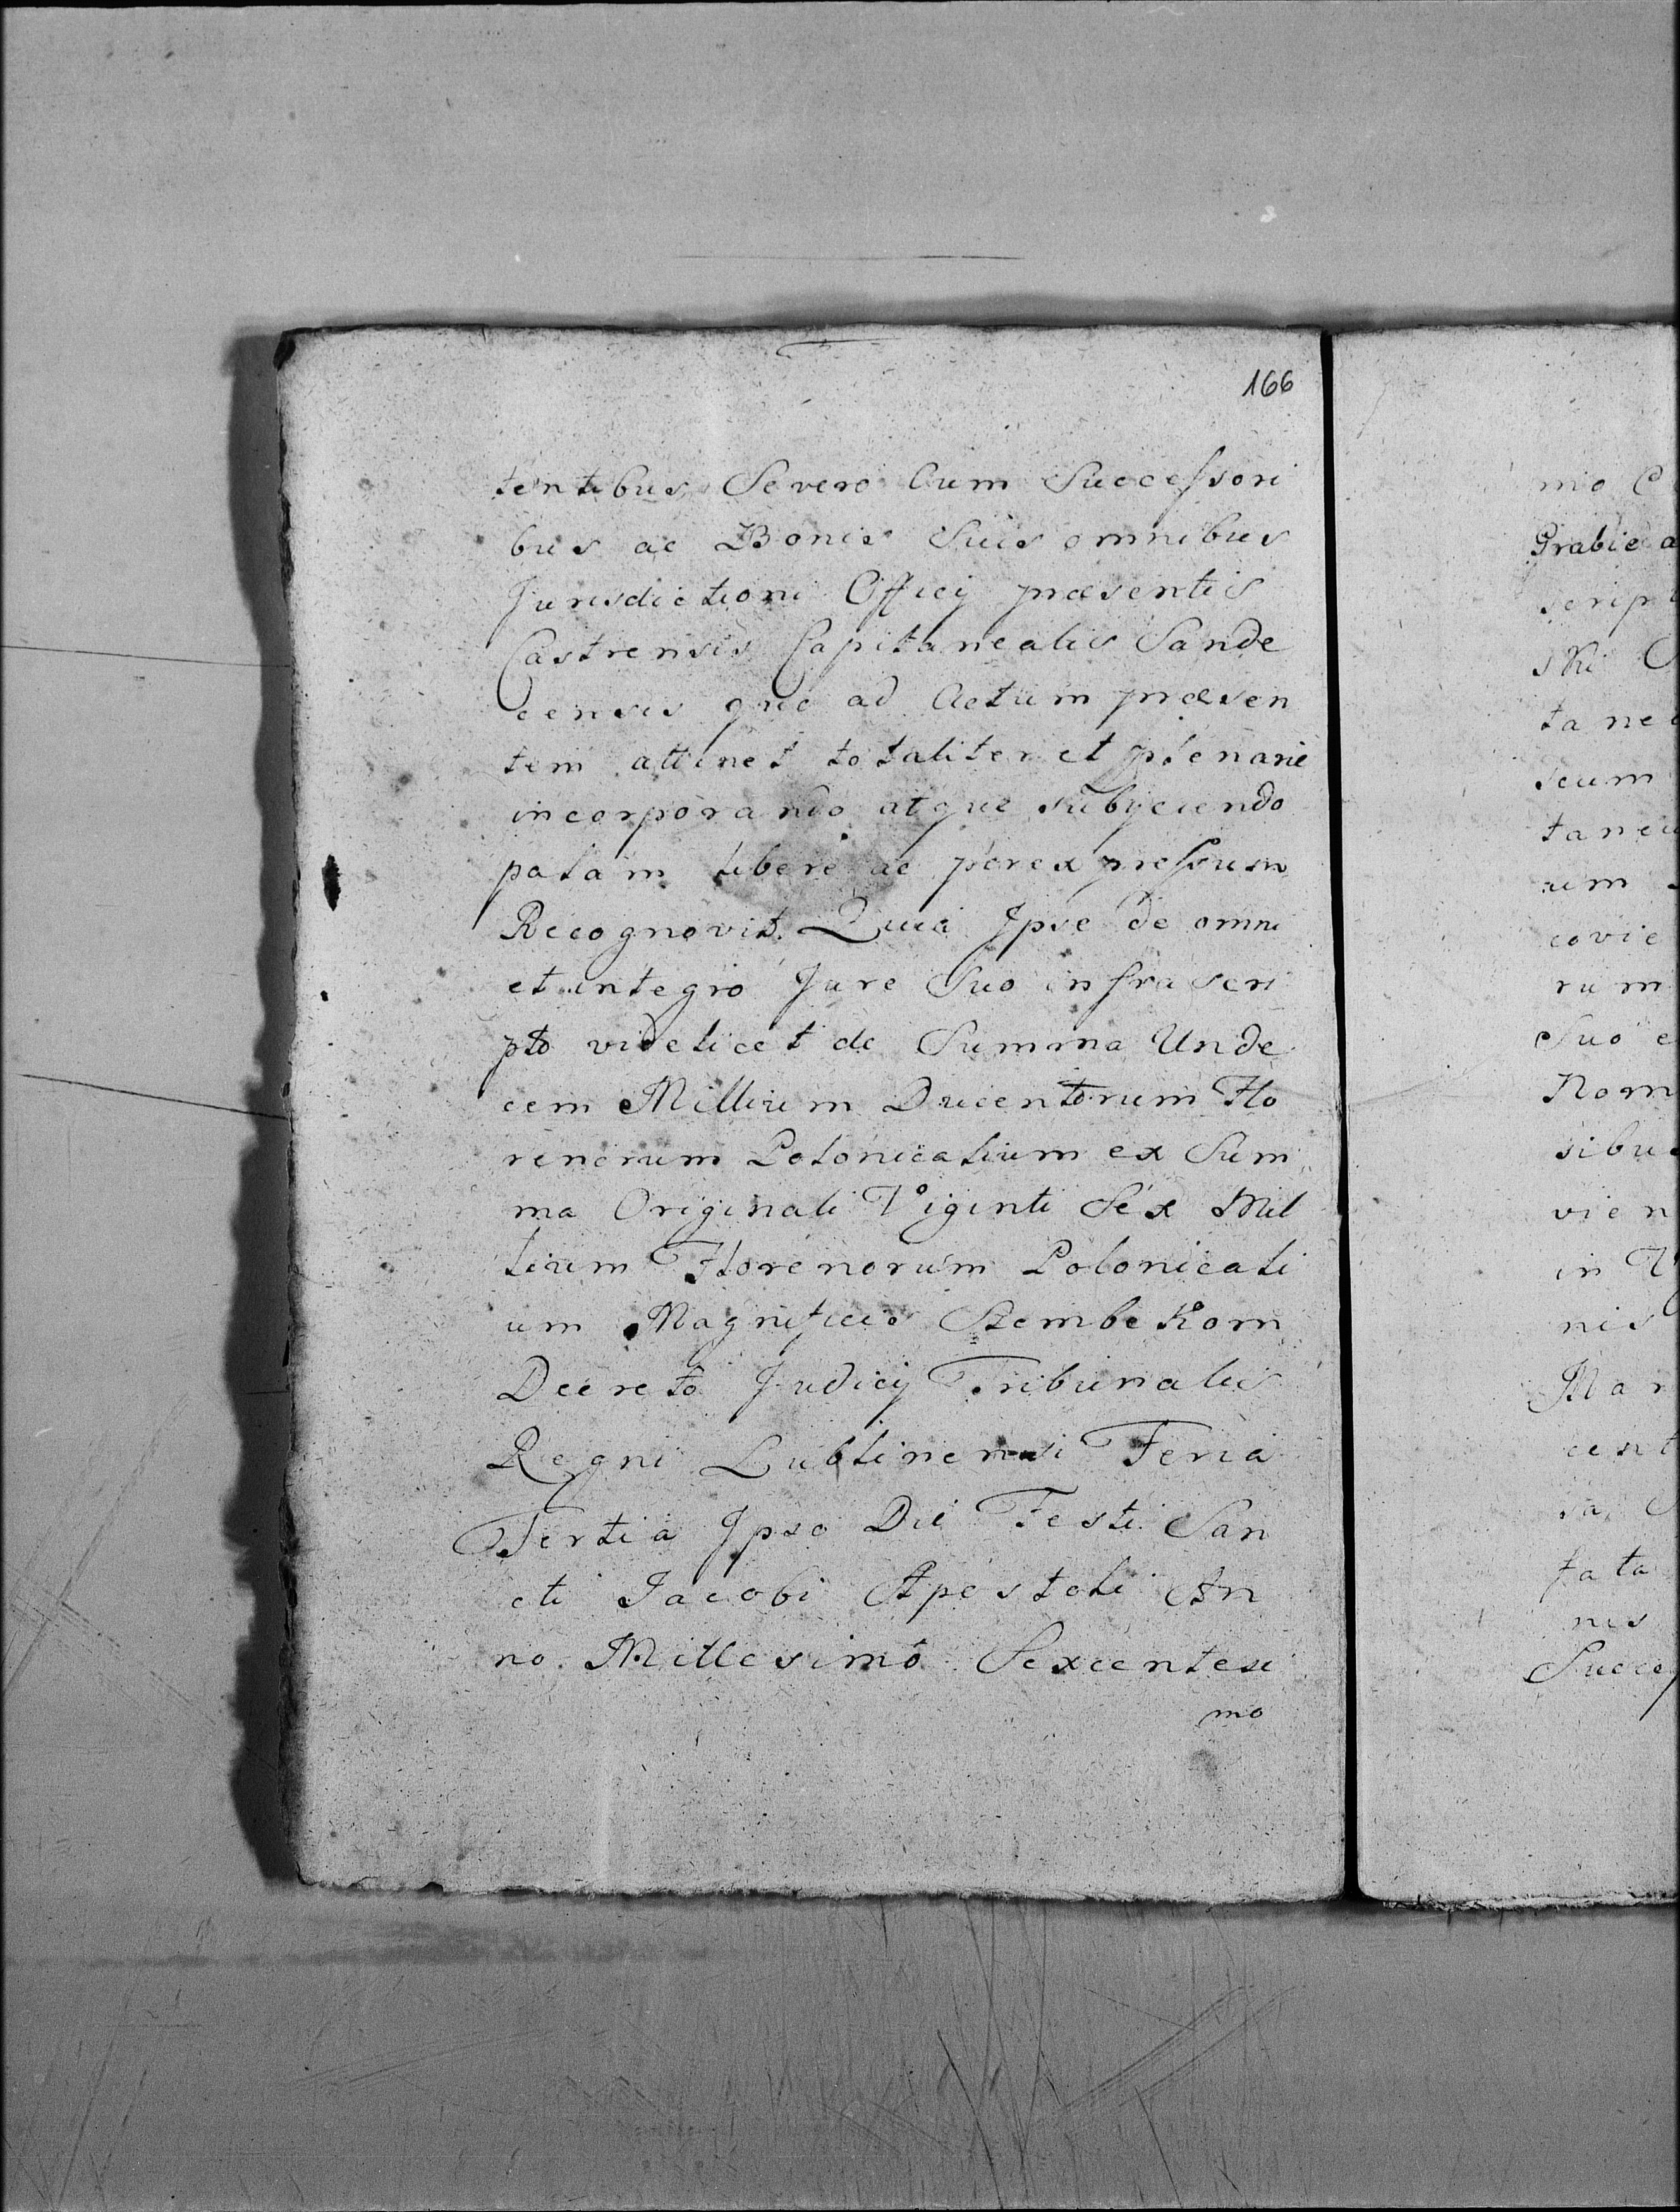 166
tentibus Severo Cum Successori
bus ac Bonis Suis omnibus
Jurisdictioni Officij præsentis
Castrensis Capitanealis Sande
censis quo ad Actum præsen
tem attinet totaliter et plenarie
incorporando atque subijciendo
palam libere ac per expressum
Recognovit. Quia Ipse de omni
et integro Jure Suo infra scri
pto videlicet de Summa Unde
cem Millium Ducentorum Flo
renorum Polonicalium ex Sum
ma Originali Viginti Sex Mil
lium Florenorum Polonicali
um Magnificis Stembekom
Decreto Judicij Tribunalis
Regni Lublinensi Feria
Tertia Ipso Die Festi San
cti Jacobi Apostoli An
no Millesimo Sexcentesi
mo
mo C
Grabie a
script
ski
tane
scum
taneu
um
covie
rum
Suo e
Nom
sibus
vien
in V
nis
Mar
cent
sa
fata
nis
Succes